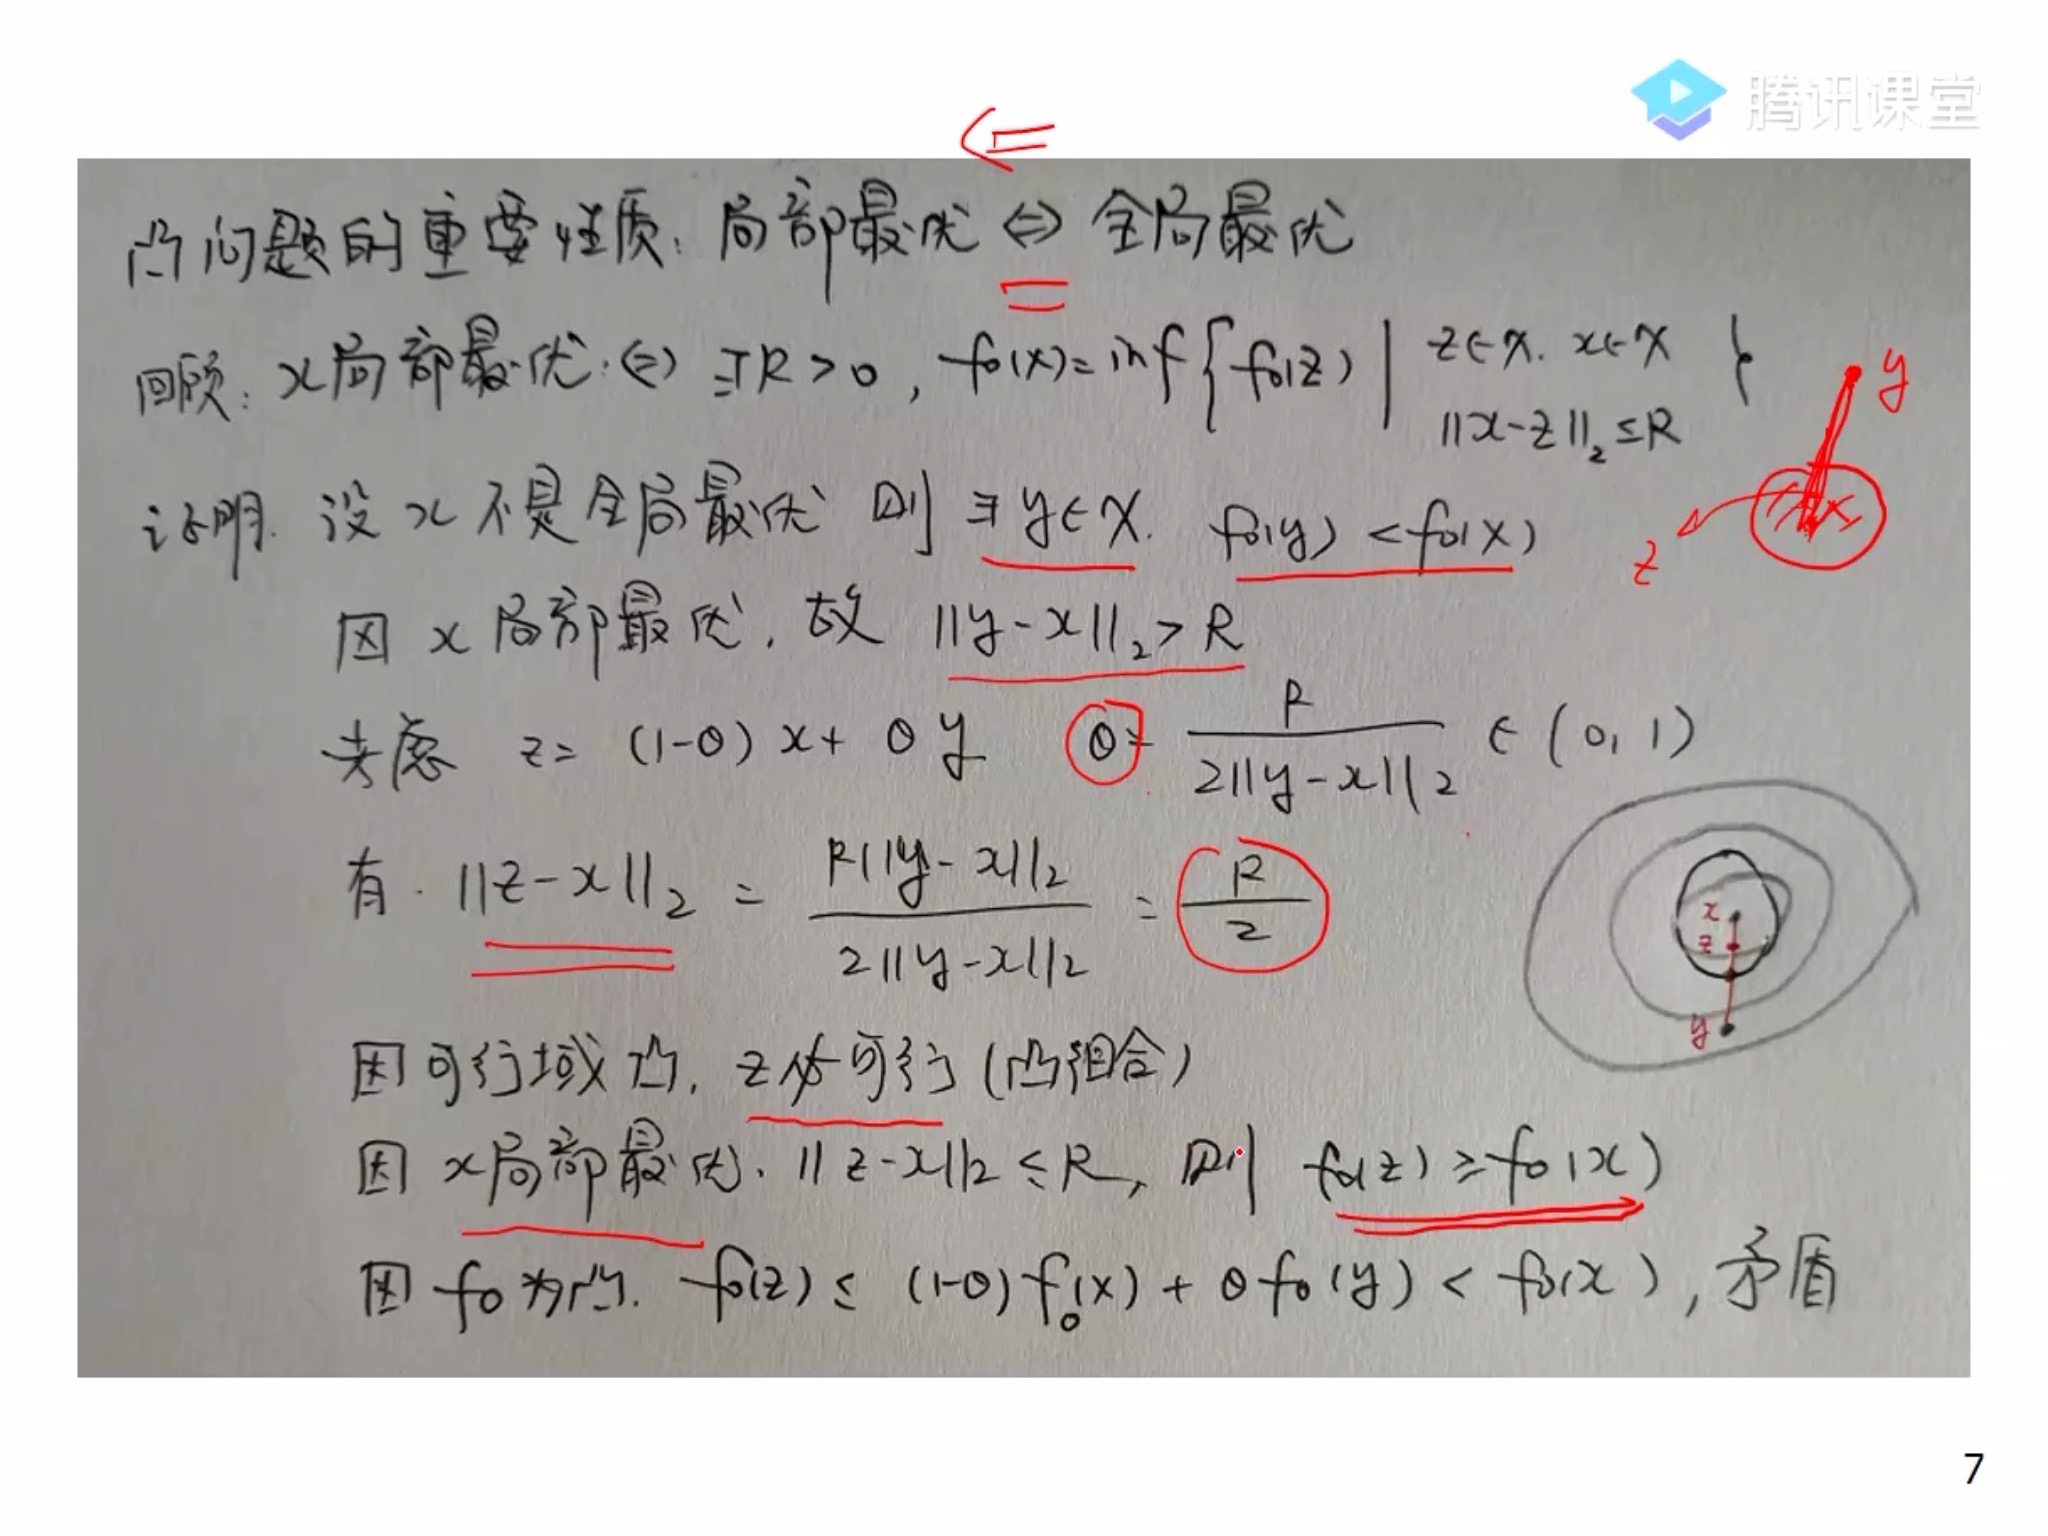 腾讯课堂
⇐
凸问题的重要性质: 局部最优 ⇔ 全局最优
回顾: x局部最优 ⇔ ∃R>0, f₀(x)=inf{f₀(z) | z∈X. x∈X
‖x-z‖₂≤R}
y
证明. 设x不是全局最优 则 ∃y∈X. f₀(y)<f₀(x)
z
x
因x局部最优, 故 ‖y-x‖₂>R
考虑 z=(1-θ)x+θy θ=R/(2‖y-x‖₂)∈(0,1)
有. ‖z-x‖₂=R‖y-x‖₂/(2‖y-x‖₂)=R/2
x
z
y
因可行域凸, z必可行(凸组合)
因x局部最优. ‖z-x‖₂≤R, 则 f₀(z)≥f₀(x)
因f₀为凸. f₀(z)≤(1-θ)f₀(x)+θf₀(y)<f₀(x), 矛盾
7